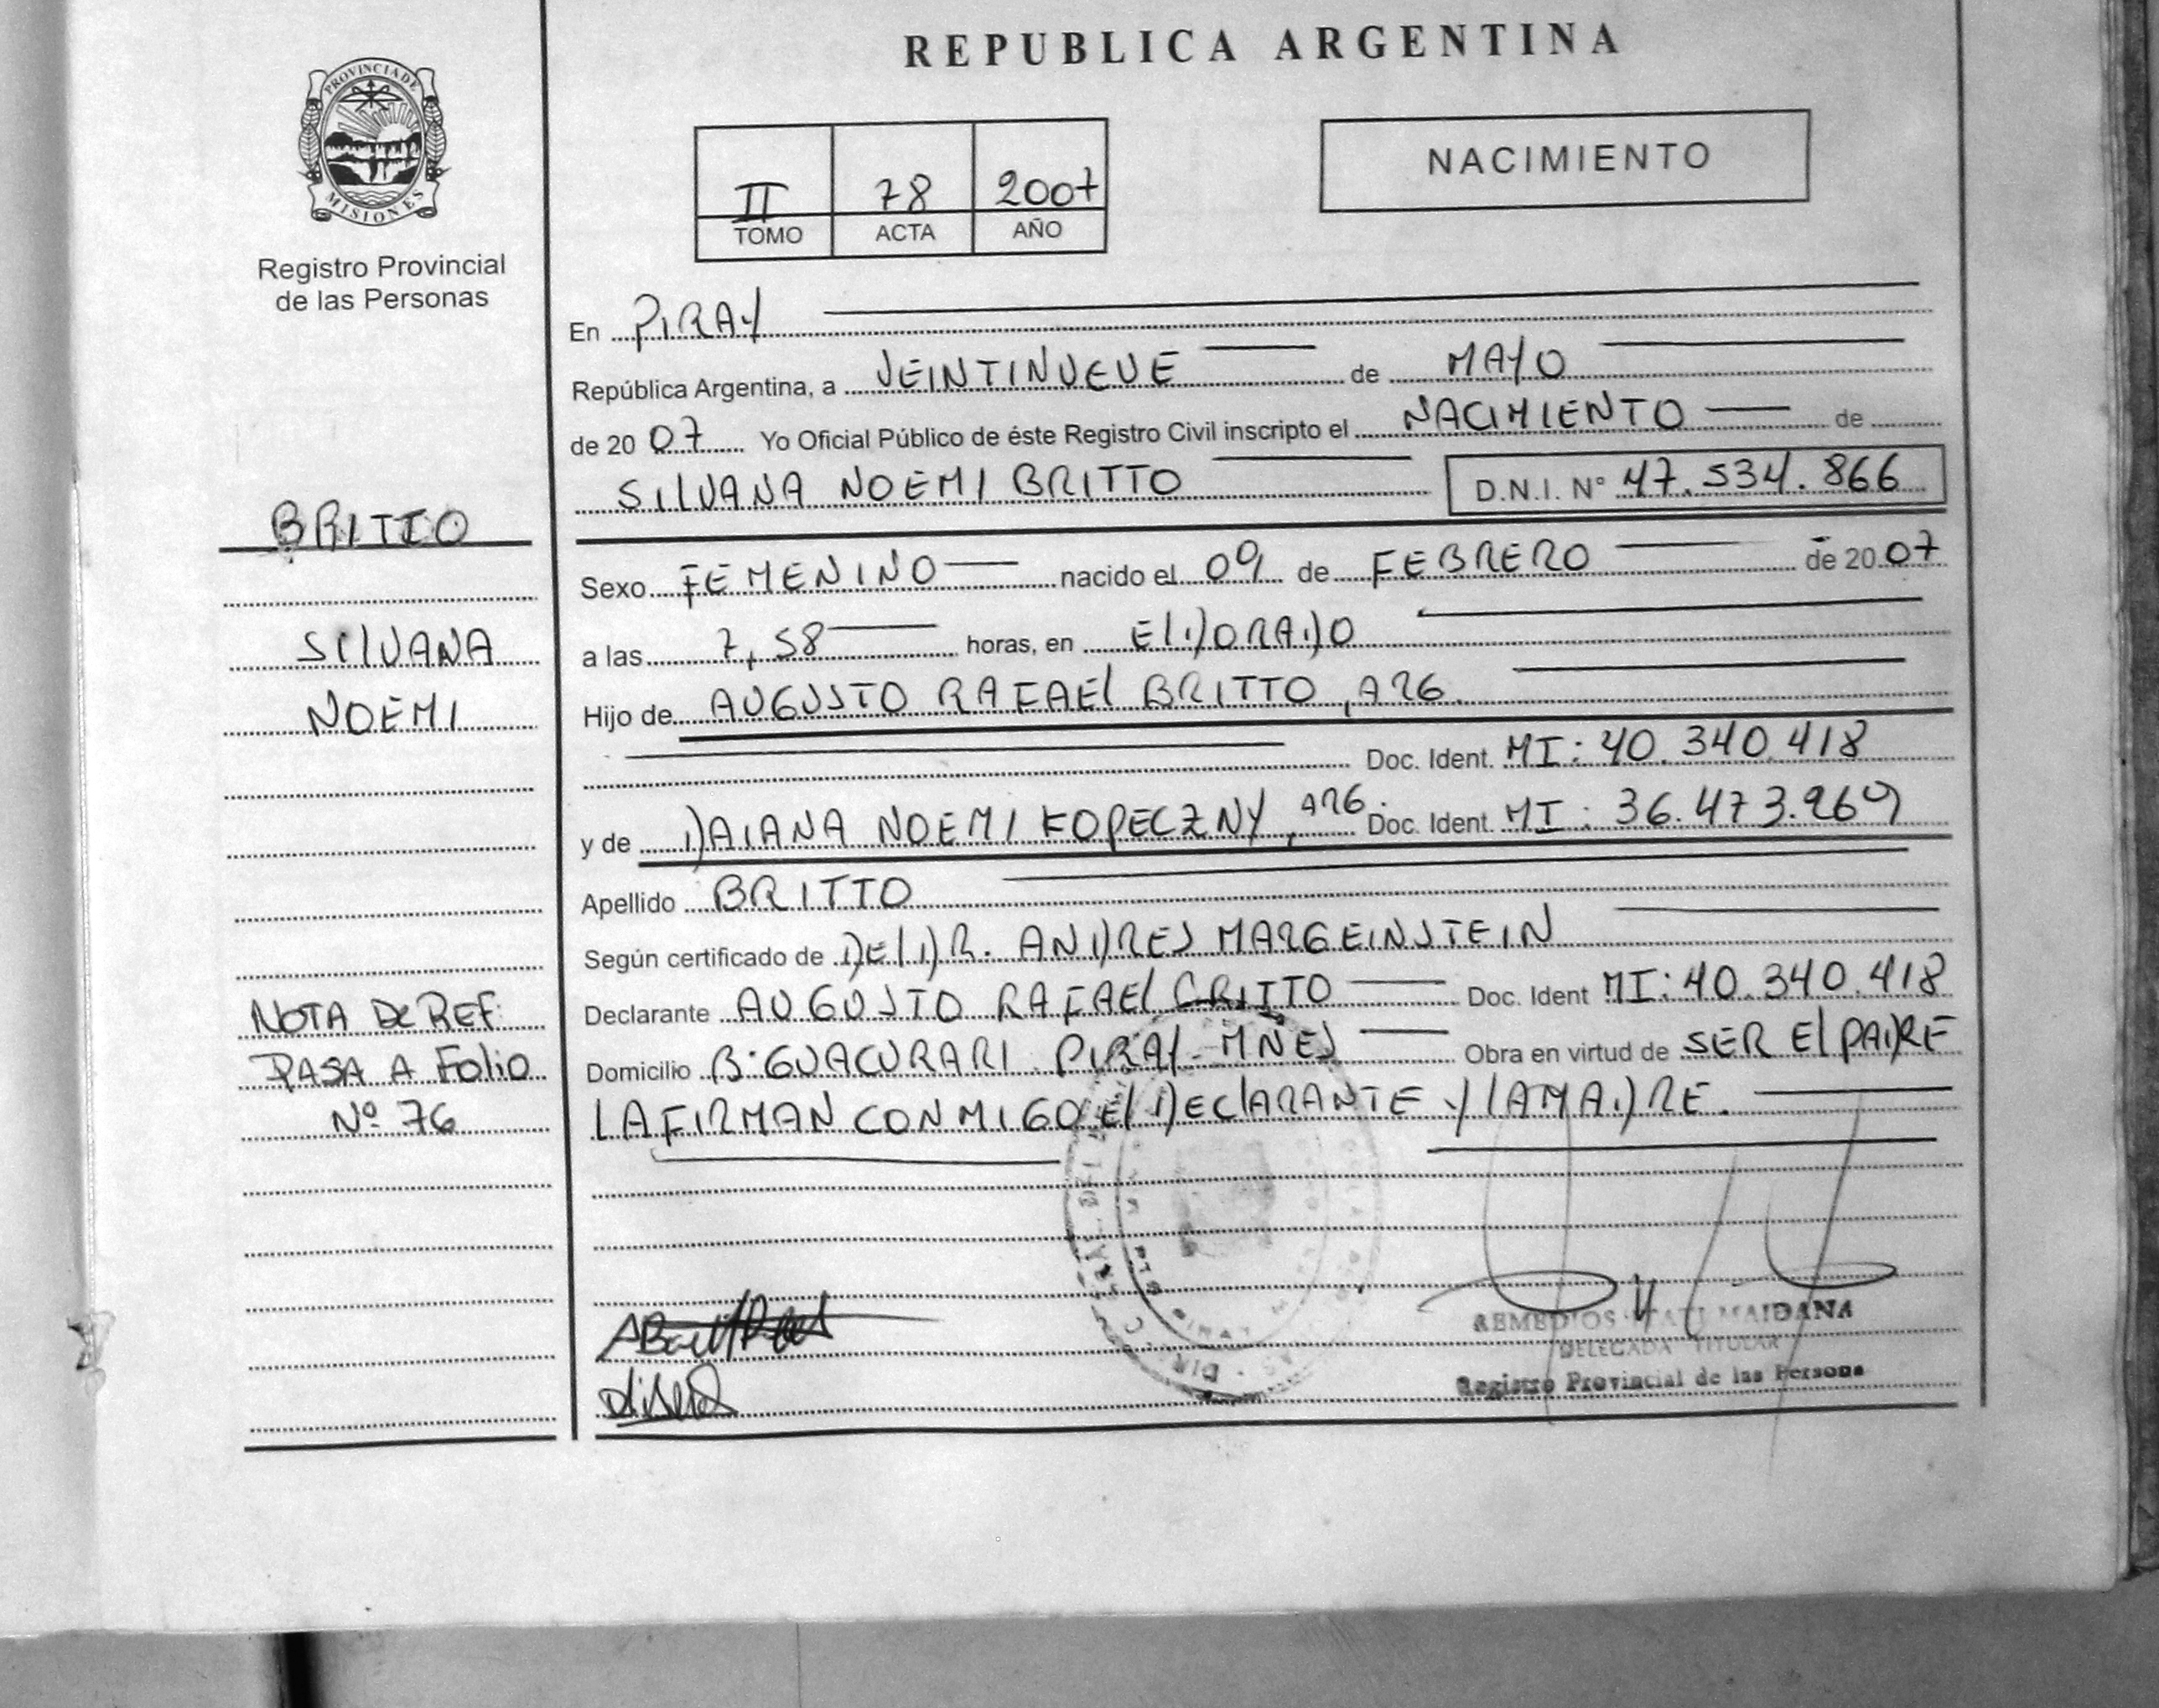 REPUBLICA ARGENTINA
PROVINCIA DE
MISIONES
Registro Provincial
de las Personas
II 78 2007
TOMO ACTA AÑO
NACIMIENTO
En PIRAY
República Argentina, a VEINTINUEVE de MAYO
de 2007 Yo Oficial Público de éste Registro Civil inscripto el NACIMIENTO de
SILVANA NOEMI BRITTO D.N.I. N° 47.534.866
BRITTO
SILVANA
NOEMI
Sexo FEMENINO nacido el 09 de FEBRERO de 2007
a las 7,58 horas, en ElDORADO
Hijo de AUGUSTO RAFAEl BRITTO, ARG.
Doc. Ident. MI: 40.340.418
y de DAIANA NOEMI KOPECZNY, ARG. Doc. Ident. MI: 36.473.269
Apellido BRITTO
Según certificado de DEl DR. ANDRES MARGEINSTEIN
Declarante AUGUSTO RAFAEl BRITTO Doc. Ident MI: 40.340.418
Domicilio B° GUACURARI. PIRAY- MNES Obra en virtud de SER El PADRE
LA FIRMAN CONMIGO El DEClARANTE Y lA MADRE.
NOTA De REF:
PASA A Folio
Nº 76
REMEDIOS MAIDANA
DELEGADA TITULAR
Registro Provincial de las Persona